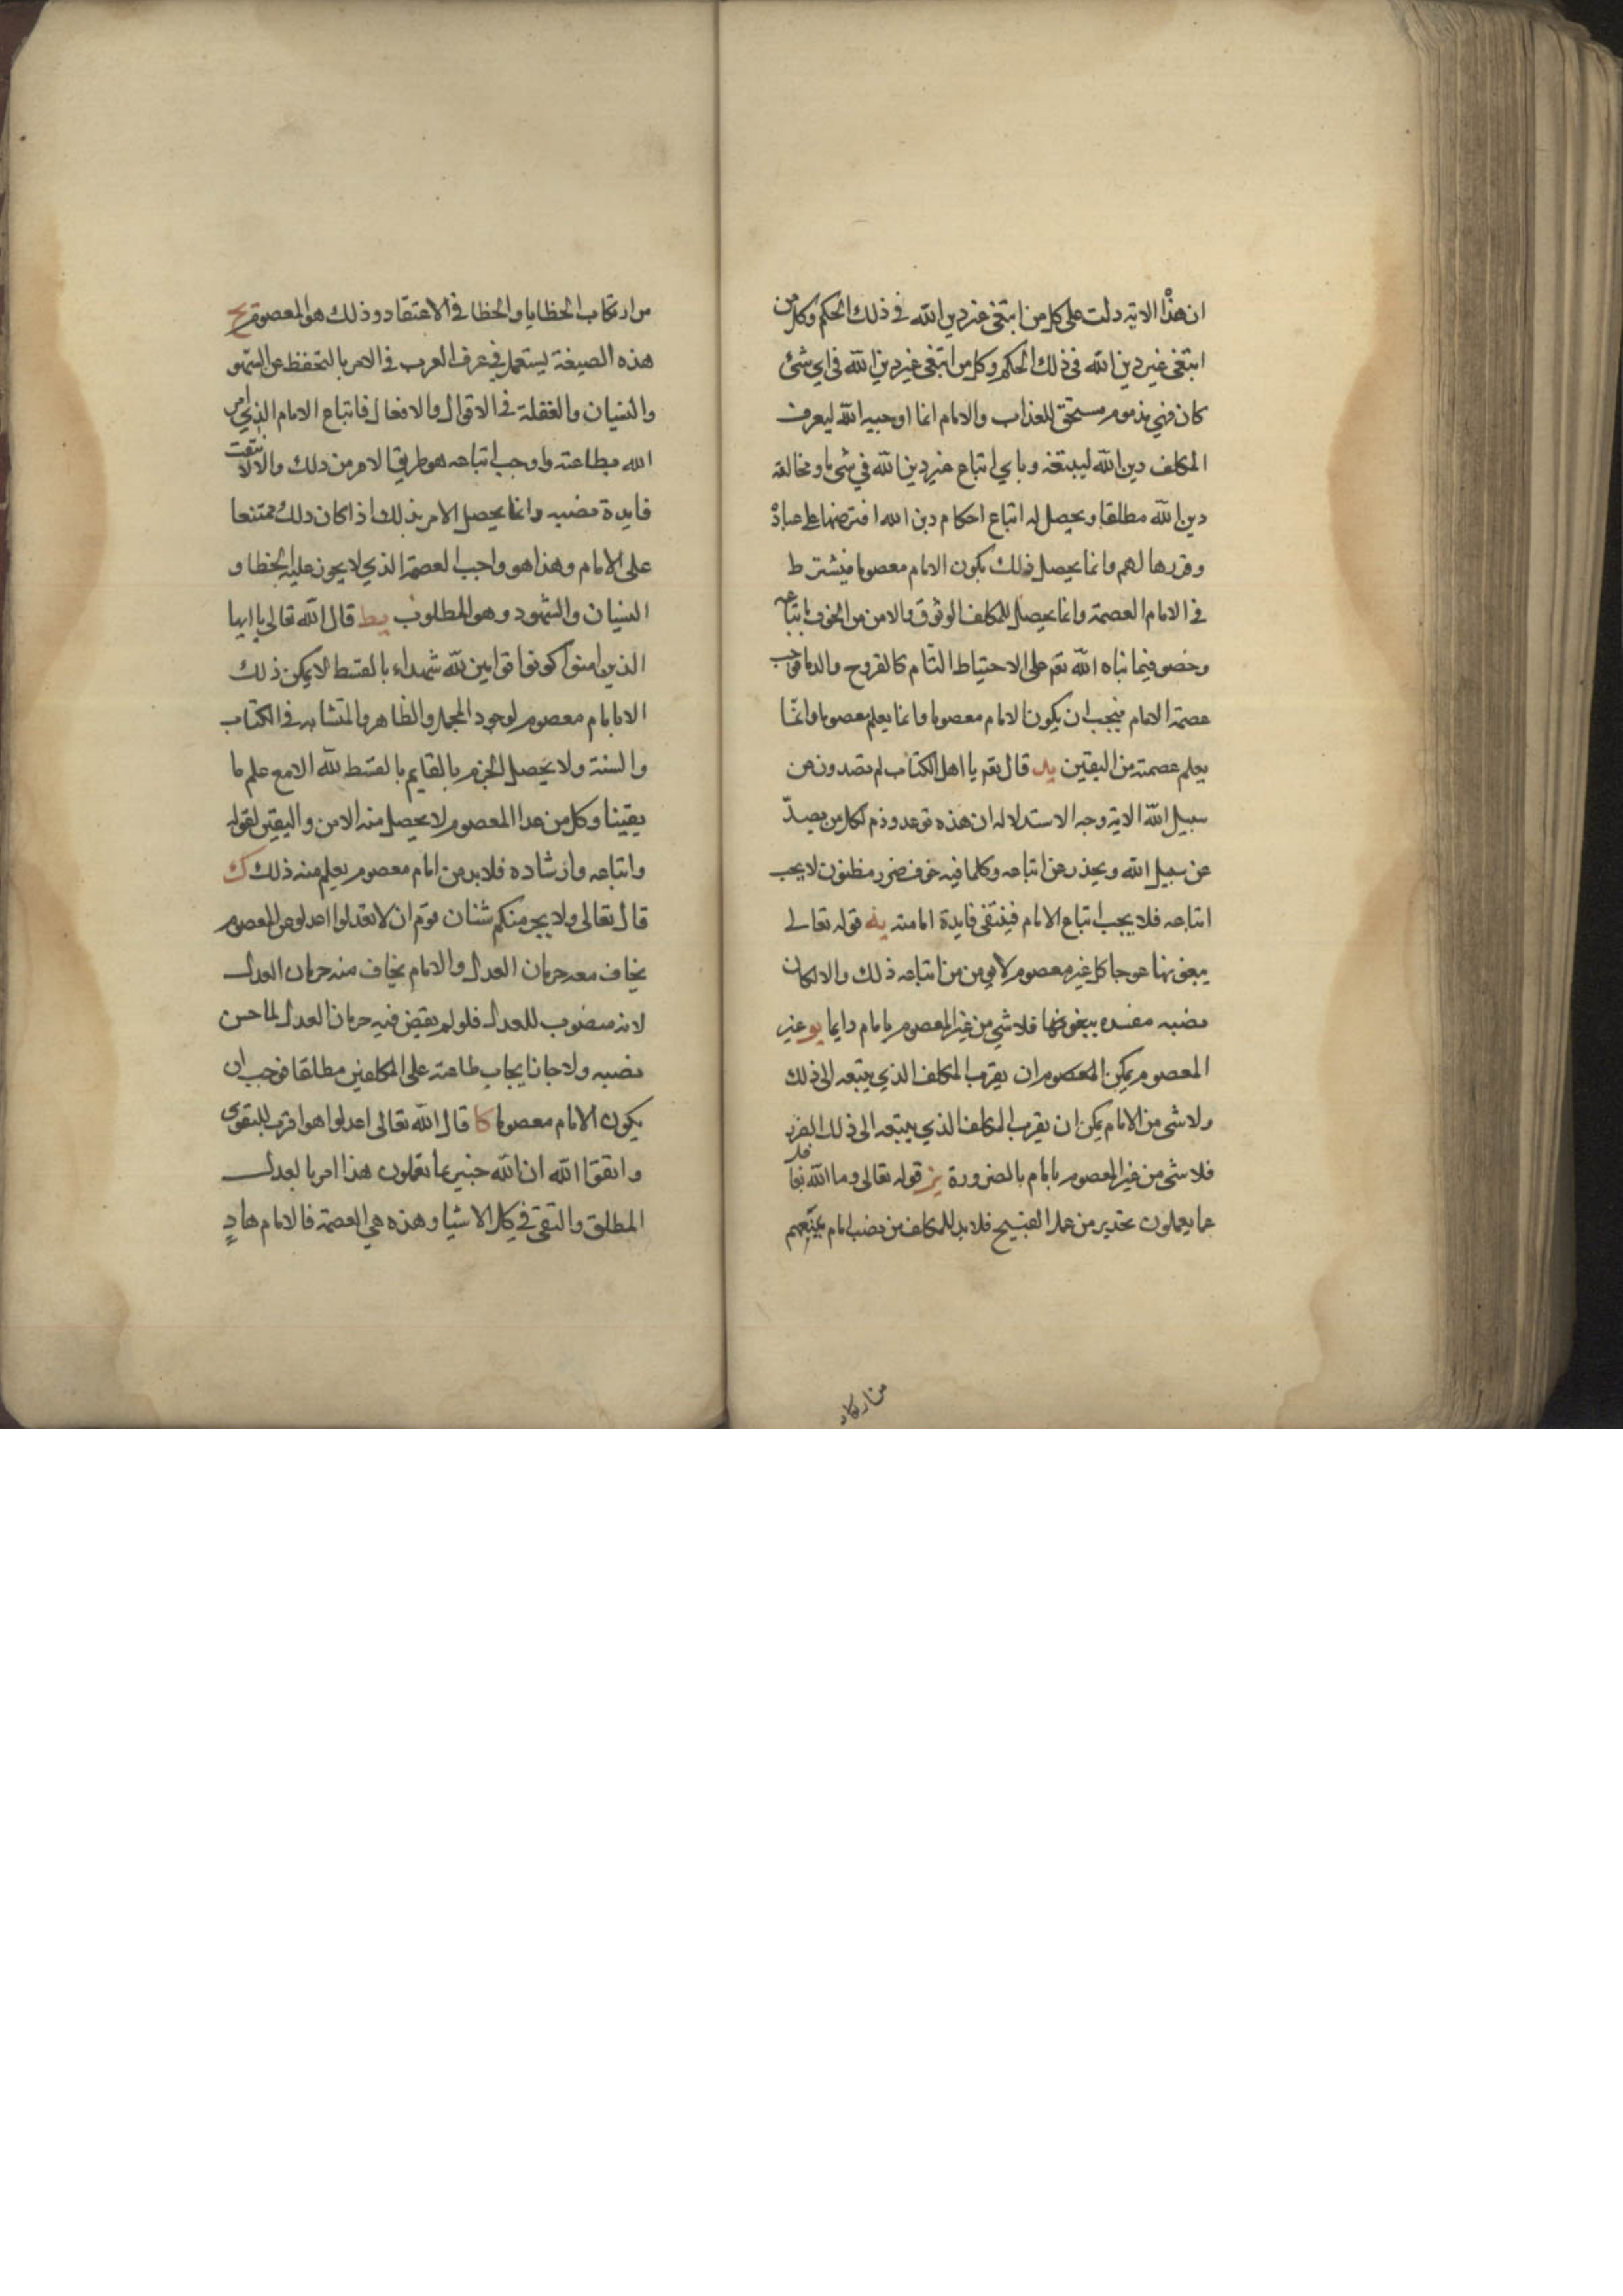 ان هذا الاية دلت على كل من ابتغى غير دين الله في ذلك الحكم وكل من
ابتغى غير دين الله في ذلك الحكم وكل من ابتغى غير دين الله في اي شئ
كان فهي مذموم مستحق للعذاب والامام انما اوجبه الله ليعرف
المكلف دين الله ليبتغه وباي اتباع غير دين الله في شى ما ومخالفة
دين الله مطلقا ويحصل له اتباع احكام دين الله افترضها على عباده
وقررها لهم وانما يحصل ذلك بكون الامام معصوما فيشترط
في الامام العصمة وانما يحصل للمكلف الوثوق والامن من الخوف باتباعه
وخصو فيما نباه الله تعم على الاحتياط التام كالفروج والدما فوجب
عصمة الامام فيجب ان يكون الامام معصوما وانما يعلم معصوما وانما
يعلم عصمته من اليقين يد قال تعم يا اهل الكتاب لم تصدون عن
سبيل الله الاية وجه الاستدلال ان هذه توعد وذم لكل من يصد
عن سبيل الله ويحذر عن اتباعه وكلما فيه خوف ضرر مظنون لا يجب
اتباعه فلا يجب اتباع الامام فينتفى فايدة امامته يه قوله تعالى
يبغونها عوجا كل غير معصوم لا يومن من اتباعه ذلك والا لكان
نصبه مفسده يبغونها فلا شي من غير المعصوم بامام دايما يو غير
المعصوم يمكن المعصوم ان يقرب المكلف الذي يتبعه الى ذلك
ولا شى من الامام يمكن ان يقرب المكلف الذي يتبعه الى ذلك
فلا شى من غير المعصوم بامام بالضرورة يز قوله تعالى وما الله بغافل
عما يعملون تحذير من عمل القبيح فلا بد للمكلف من نصب امام
من ارتكاب
من ارتكاب الخطايا والخطا في الاعتقاد وذلك هو المعصوم يح
هذه الصيغة يستعمل في عرف العرب في الامر بالتحفظ عن السهو
والنسيان والغفلة في الاقوال والافعال فاتباع الامام الذي امر
الله بطاعته واوجب اتباعه هو طريقا لامر من ذلك والا لانتفت
فايدة نصبه وانما يحصل الامر بذلك اذا كان ذلك ممتنعا
على الامام وهذا هو واجب العصمة الذي لا يجوز عليه الخطا و
النسيان والسهو وهو المطلوب يط قال الله تعالى يا ايها
الذين امنوا كونوا قوامين لله شهداء بالقسط لا يمكن ذلك
الا بامام معصوم لوجود المجمل والظاهر والمتشابه في الكتاب
والسنة ولا يحصل الجزم بالقايم بالقسط لله الا مع علم ما
يقينا وكل من عدا المعصوم لا يحصل منه الامن واليقين لقوله
واتباعه وارشاده فلا بد من امام معصوم يعلم منه ذلك ك
قال تعالى ولا يجرمنكم شنان قوم ان لا تعدلوا اعدلوا غير المعصوم
يخاف معه حرمان العدل والامام يخاف منه حرمان العدل
لانه منصوب للعدل فلو لم يقيض فيه حرمان العدل لما حسن
نصبه ولا جاز ايجاب طاعته على المكلفين مطلقا فوجب ان
يكون الامام معصوما كا قال الله تعالى اعدلوا هو اقرب للتقوى
واتقوا الله ان الله خبير بما تعملون هذا امر بالعدل
المطلق والتقى في كل الاشيا وهذه هي العصمة فالامام هاد